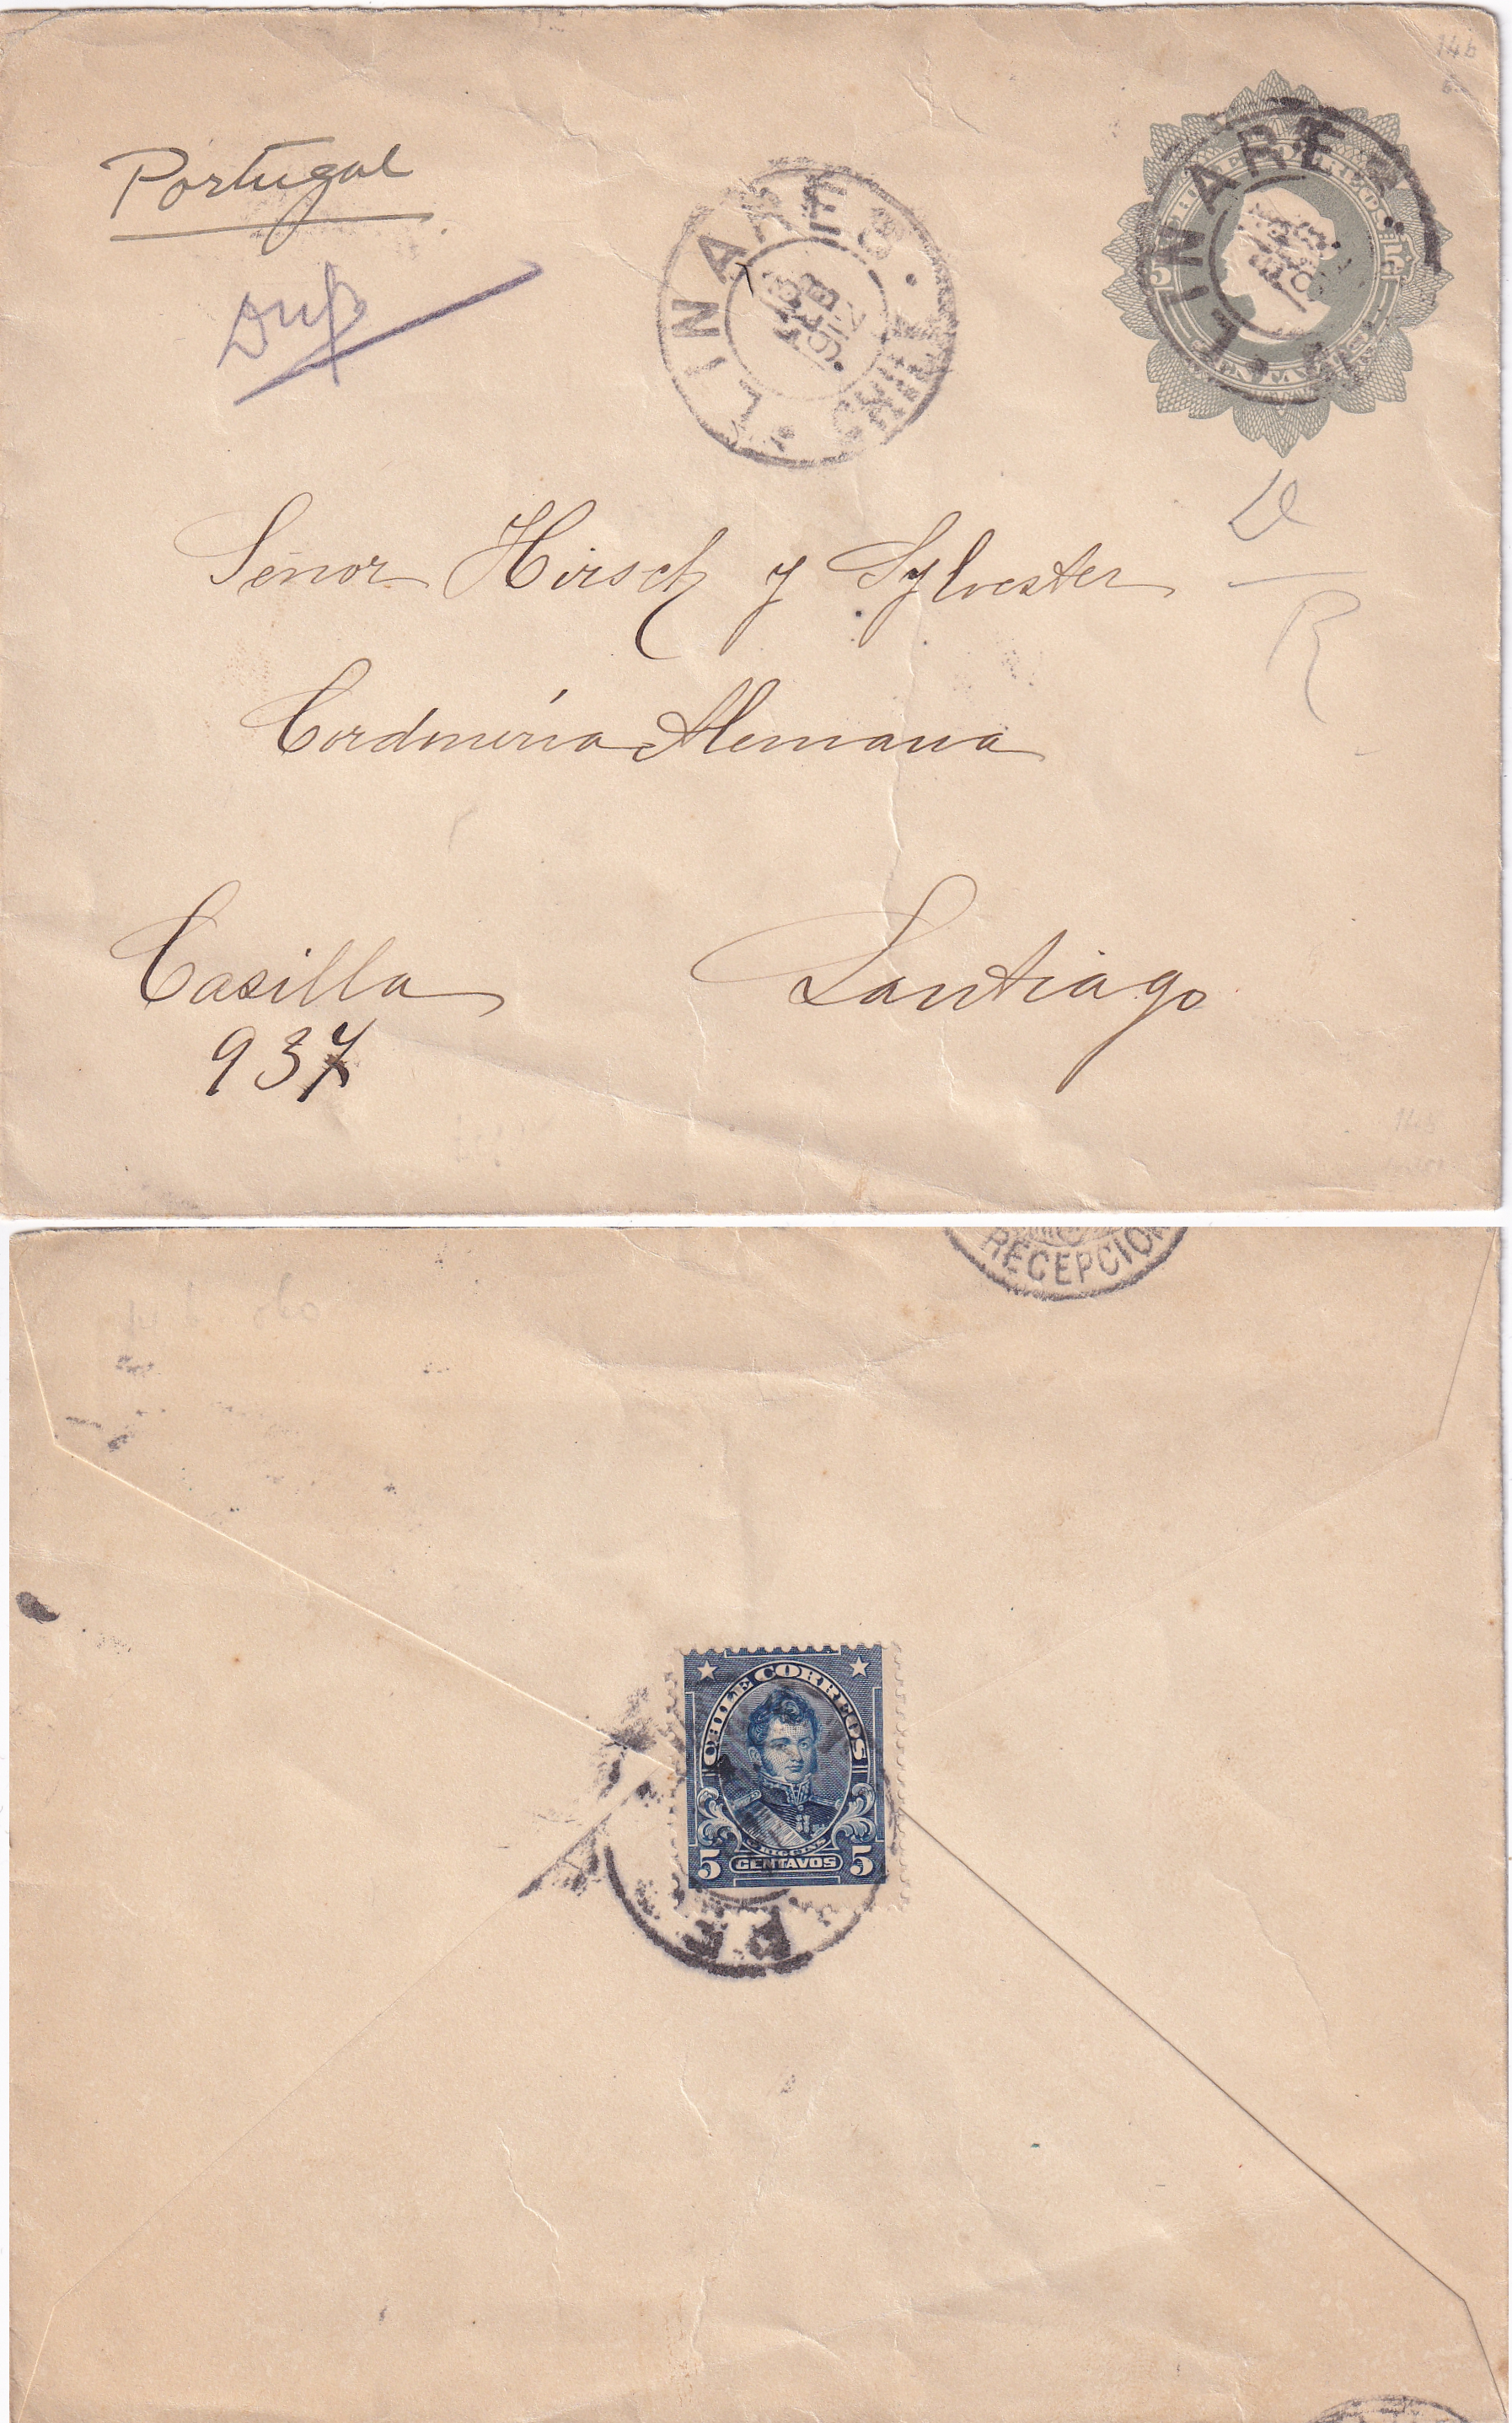 14b
Portugal
Dup
LINARES
CHILE
5
LINARES
Señor Hirsch y Sylvester
Cordonería Alemana
Casilla
937
Santiago
RECEPCION
CHILE CORREOS
O'HIGGINS
5 CENTAVOS 5